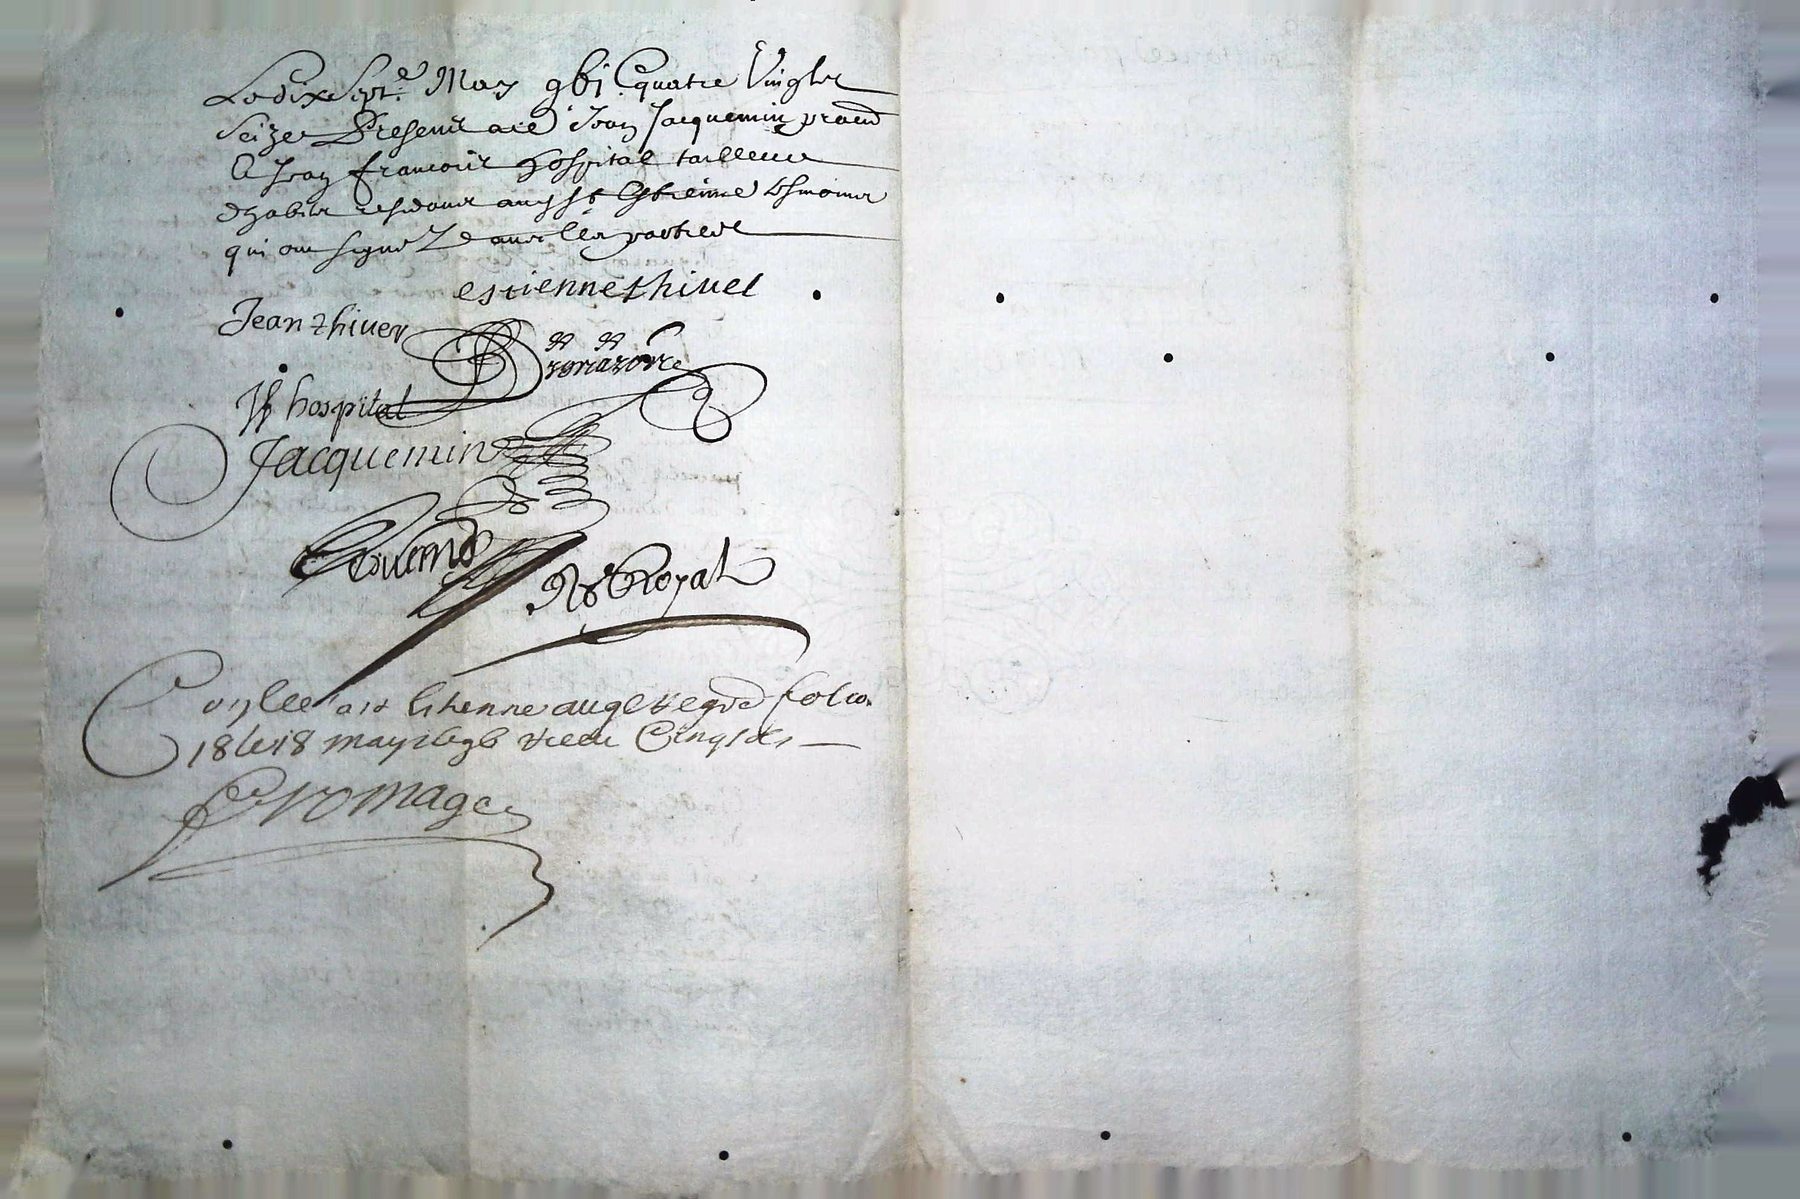 Le dix Sept.e May gbi C quatre Vingts
Seize Present a ce Jean Jacquemin
le Jean francois hospital tailleur
d'habits residant aud St Estienne tesmoins
qui ont signez avec les parties
estienne thivel
Jean thiver
JF hospital
Jacquemin
Ns Royal
Conlle a St Ethienne au 9e Regre folio
18 le 18 may 1696 receu Cinq sols
Fromage